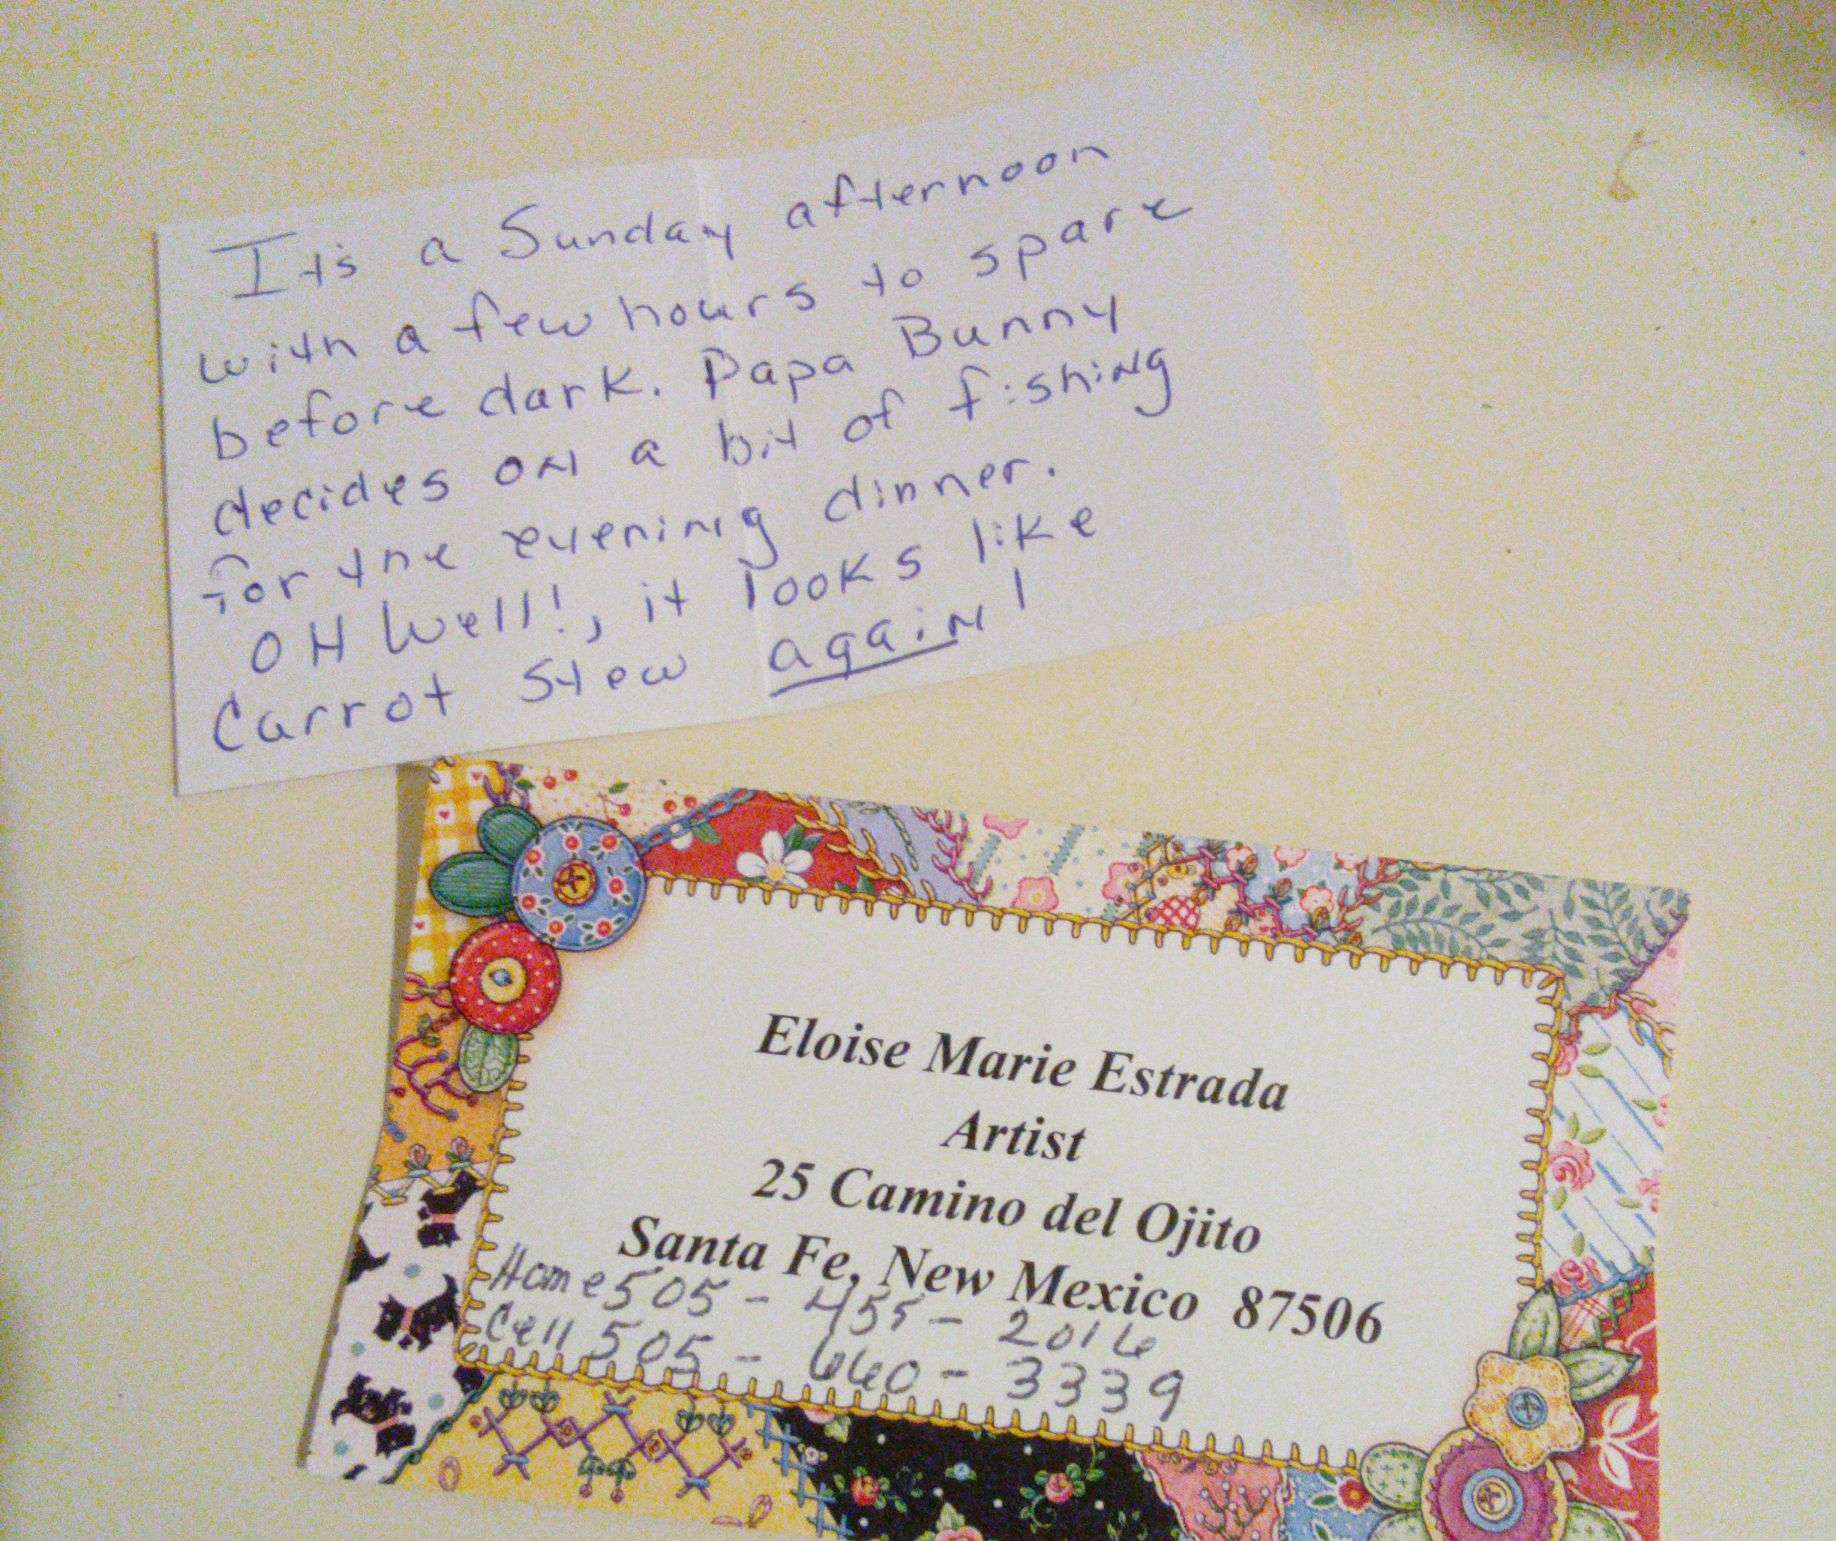 Its a Sunday afternoon
with a few hours to spare
before dark. Papa Bunny
decides on a bit of fishing
for the evening dinner.
OH Well!, it looks like
Carrot Stew again!
Eloise Marie Estrada
Artist
25 Camino del Ojito
Santa Fe, New Mexico 87506
Home 505-455-2016
Cell 505-660-3339